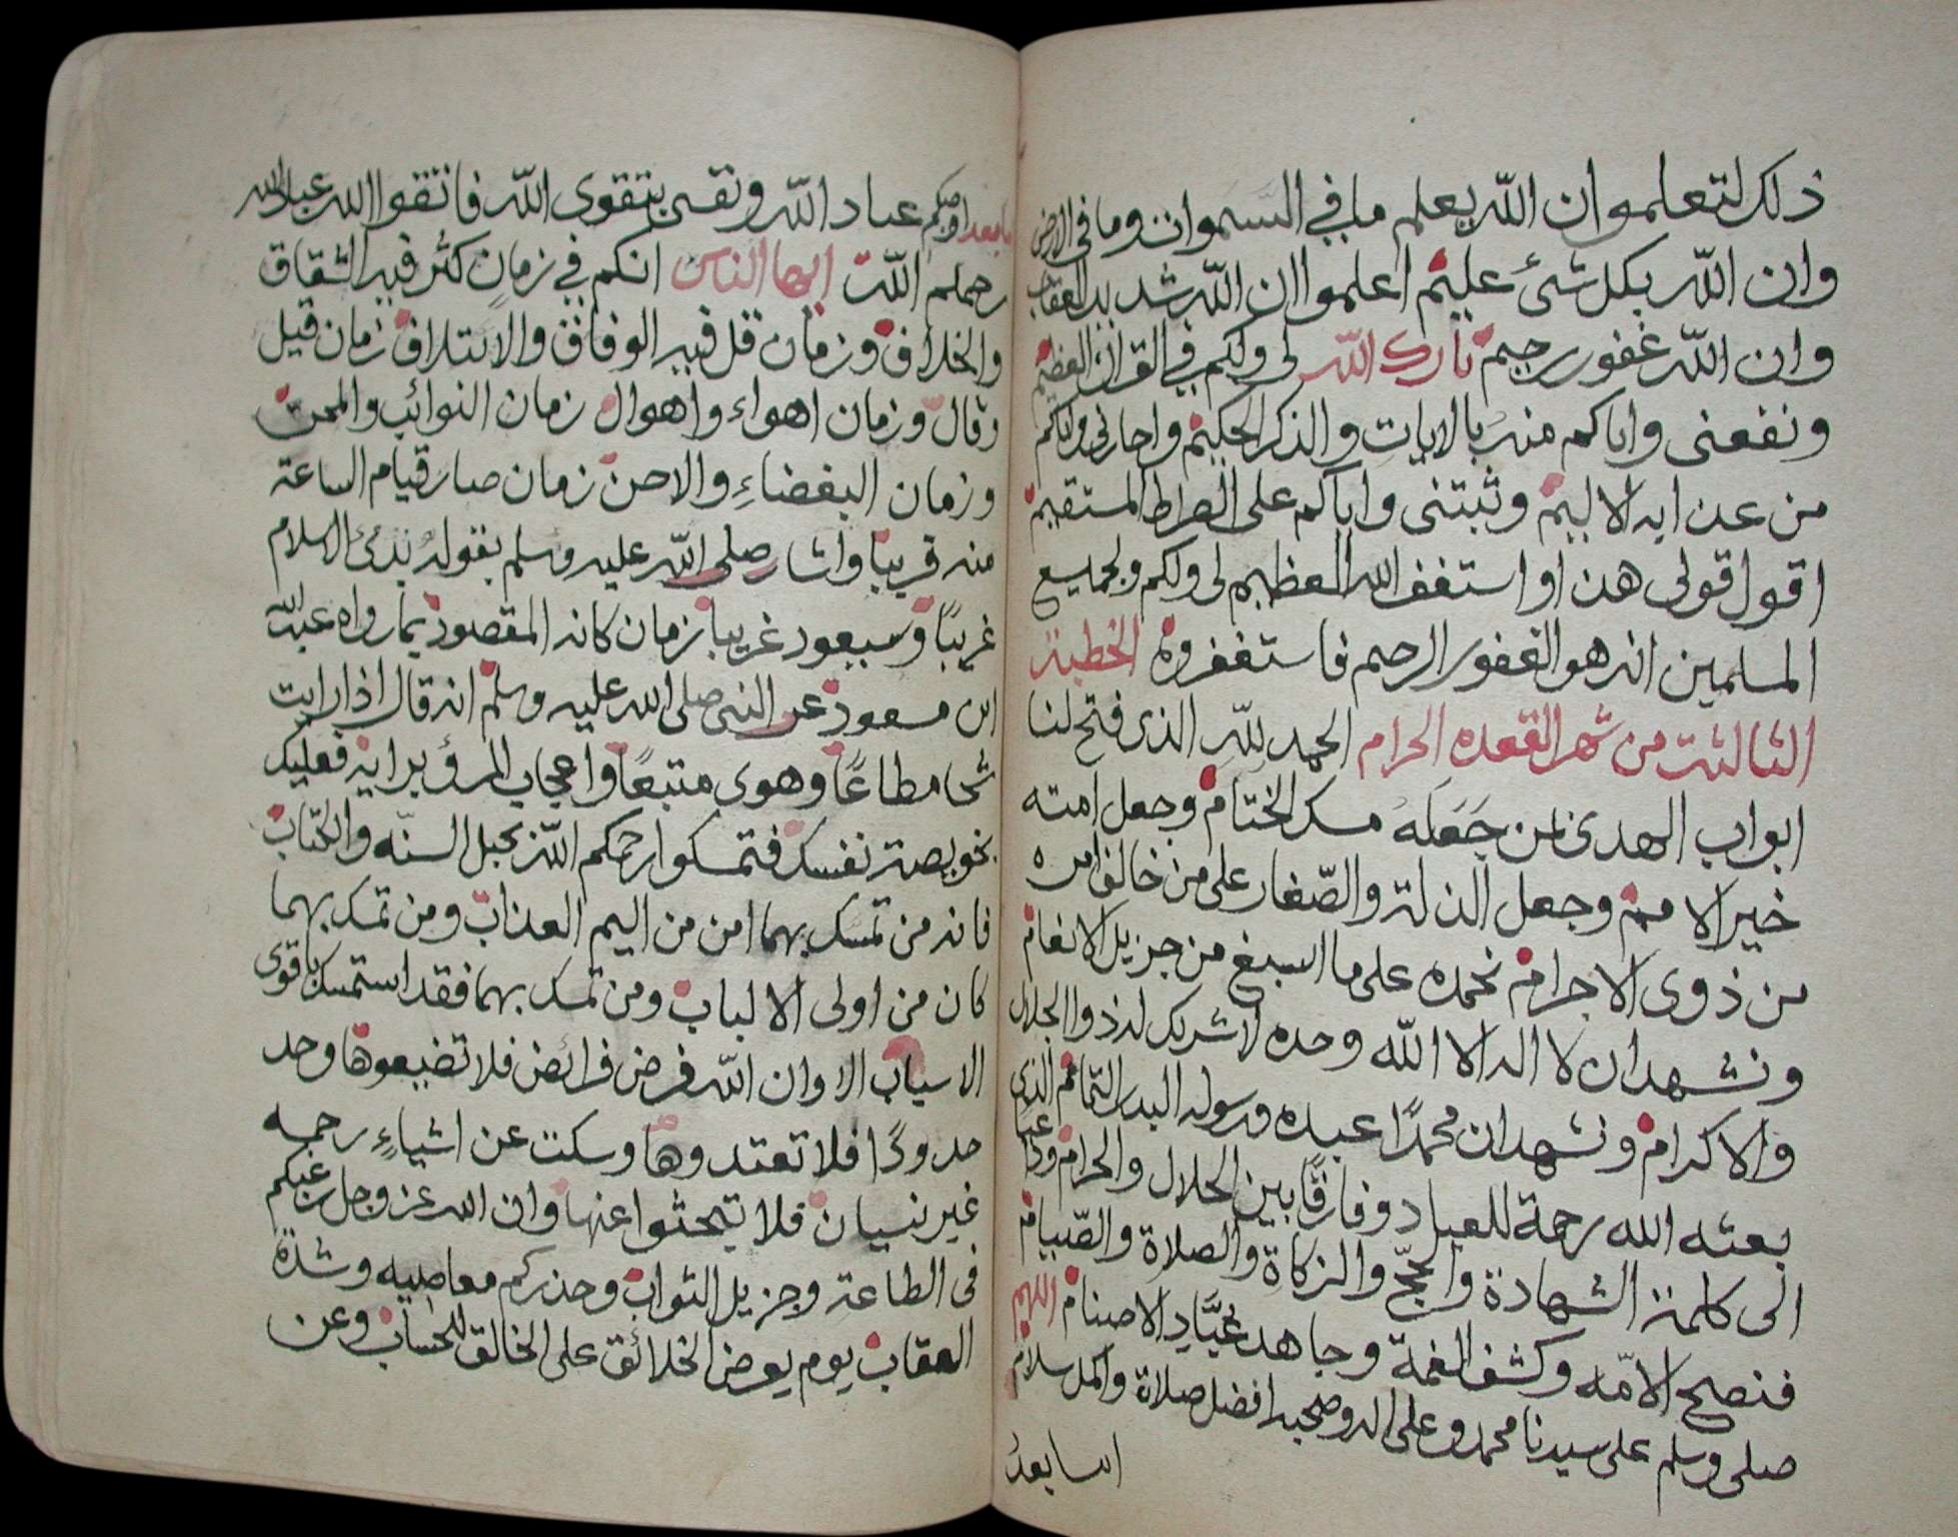 ذلك لتعلموا ان الله يعلم ما في السموات وما في الارض
وان الله بكل شئ عليم اعلموا ان الله شديد العقاب
وان الله غفور رحيم بارك الله لي ولكم في القران العظيم
ونفعني واياكم منه بالايات والذكر الحكيم واجارني واياكم
من عذابه الاليم وثبتني واياكم على الصراط المستقيم
اقول قولي هذا واستغفر الله العظيم لي ولكم ولجميع
المسلمين انه هو الغفور الرحيم فاستغفروه الخطبة
الثالثة من شهر القعده الحرام الحمد لله الذي فتح لنا
ابواب الهدى بمن جَعَلَهُ مسك الختام وجعل امته
خير الامم وجعل الذلة والصّغار على من خالف امره
من ذوي الاجرام نحمده على ما اسبغ من جزيل الانعام
ونشهد ان لا اله الا الله وحده لا شريك له ذو الجلال
والاكرام ونشهد ان محمدًا عبده ورسوله البدر التمام الذي
بعثه الله رحمة للعباد وفارقًا بين الحلال والحرام ودعا
الى كلمة الشهادة والحجّ والزكاة والصلاة والصّيام
فنصح الامّه وكشف الغمة وجاهد عُبَّادِ الاصنام اللهم
صلي وسلم على سيدنا محمد وعلى اله وصحبه افضل صلاة واكمل سلام
اما بعد
اما بعد اوصيكم عباد الله ونفسي بتقوى الله فاتقوا الله عباد الله
رحمكم الله ايها الناس انكم في زمان كثر فيه الشقاق
والخلاف وزمان قل فيه الوفاق والائتلاف زمان قيل
وقال وزمان اهواء واهوال زمان النوائب والمحن
وزمان البغضاءِ والاحن زمان صار قيام الساعة
منه قريبا واشار صلى الله عليه وسلم بقوله بدئ الاسلام
غريبًا وسيعود غريبا بزمان كانه المقصود بما رواه عبد الله
ابن مسعود عن النبي صلى الله عليه وسلم انه قال اذا رايت
شحا مطاعًا وهوى متبعًا واعجاب المرؤ برايه فعليك
بخويصة نفسك فتمسكوا رحمكم الله بحبل السنّه والكتاب
فانه من تمسك بهما امن من اليم العذاب ومن تمسك بهما
كان من اولي الالباب ومن تمسك بهما فقد استمسك باقوى
الاسباب الا وان الله فرض فرائض فلا تضيعوها وحد
حدودًا فلا تعتدوها وسكت عن اشياءٍ رحمه
غير نسيان فلا تبحثوا عنها وان الله عز وجل رغبكم
في الطاعة وجزيل الثواب وحذركم معاصيه وشدة
العقاب يوم يعرض الخلائق على الخالق للحساب وعن